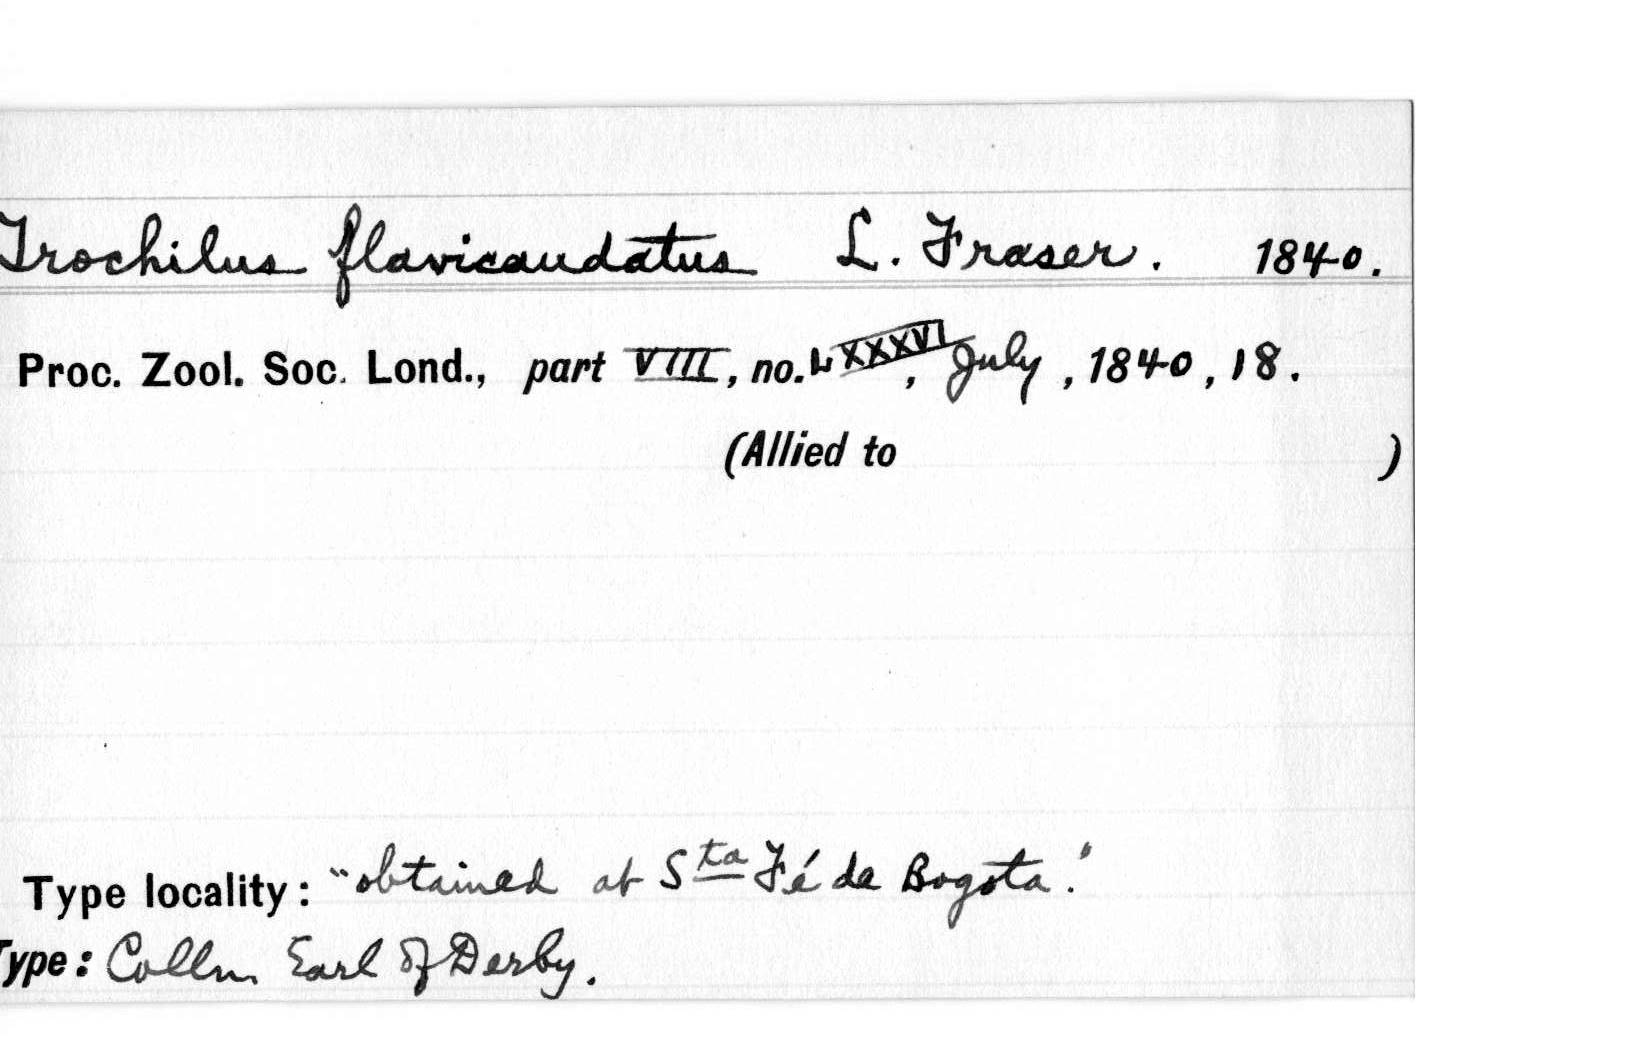 Trochilus flavicaudatus L. Fraser. 1840.
Proc. Zool. Soc. Lond., part VIII, no. LXXXVI, July, 1840, 18.
(Allied to )
Type locality: "obtained at Sta Fé de Bogota."
Type: Colln Earl of Derby.